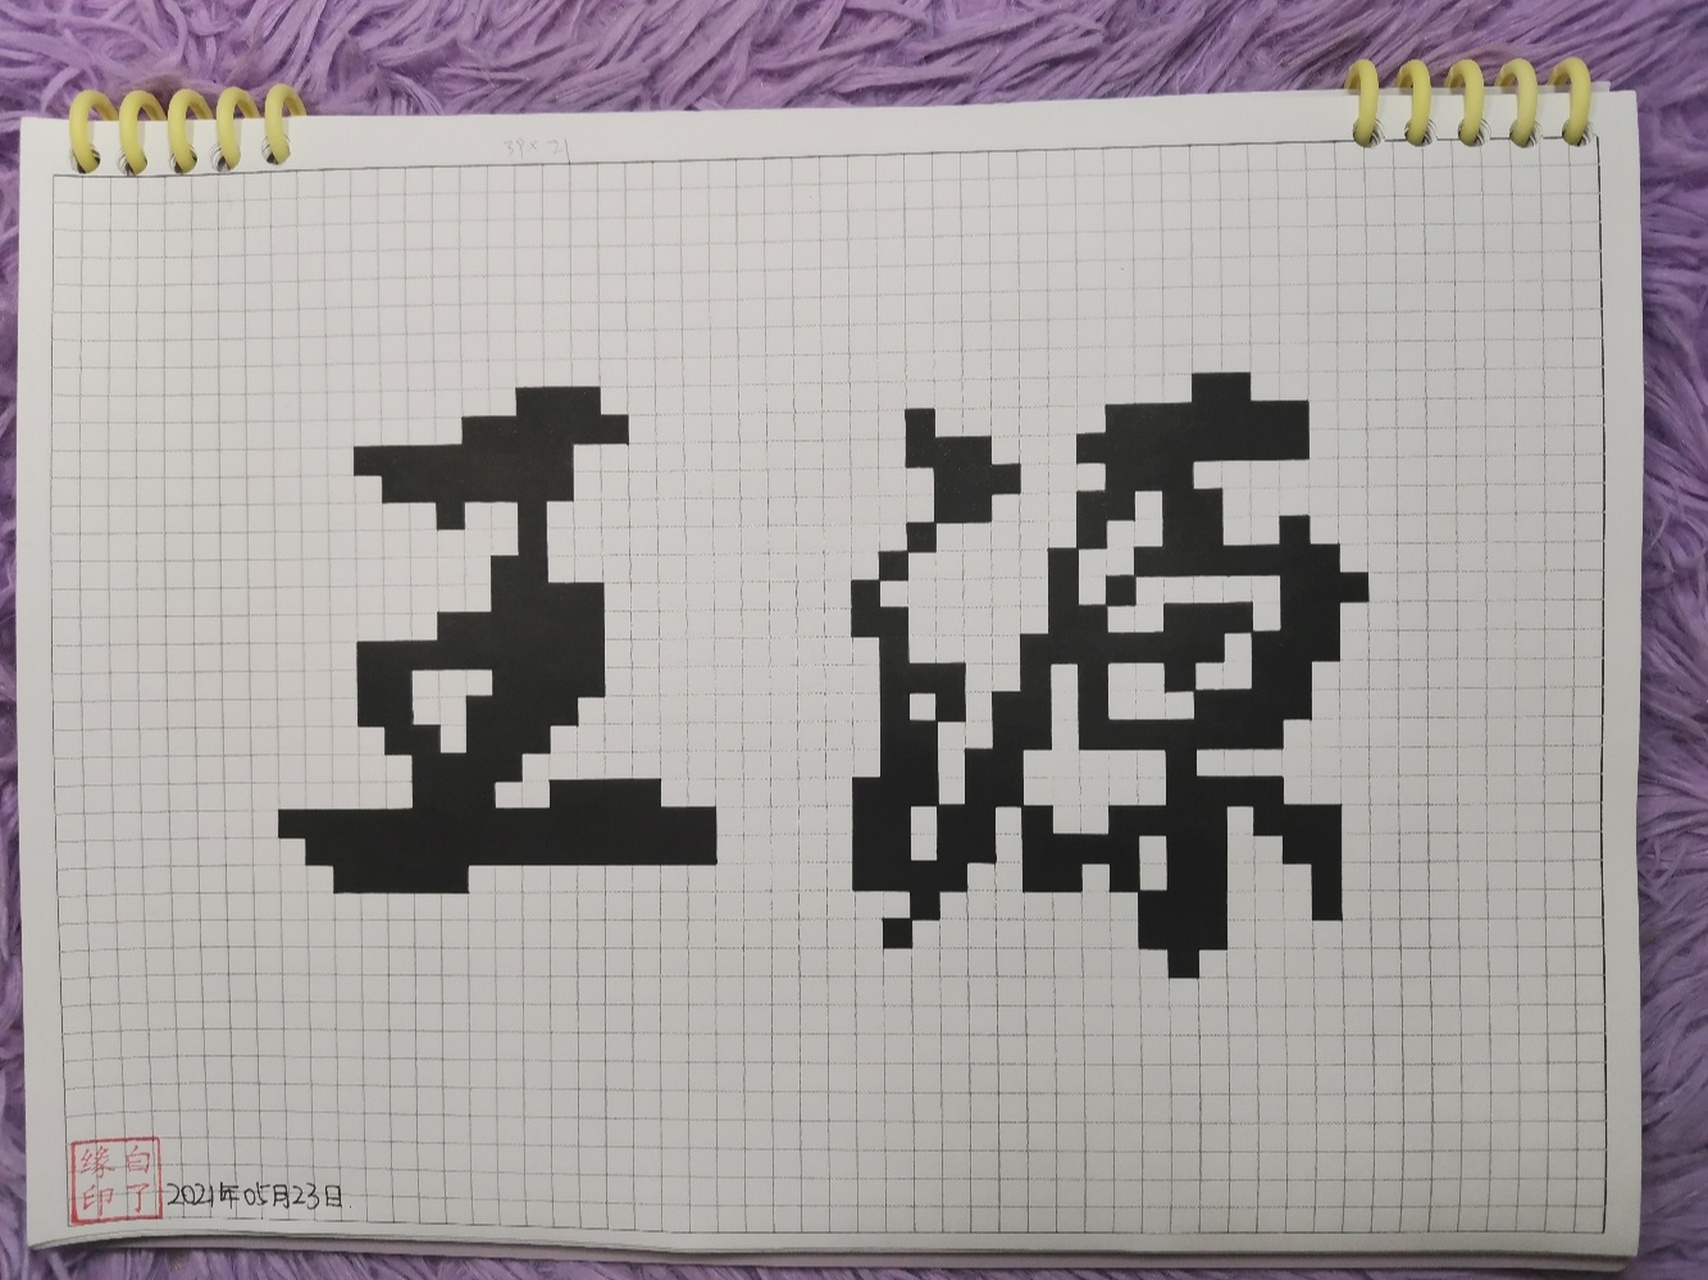 39×21
王源
自了缘印
2021年05月23日